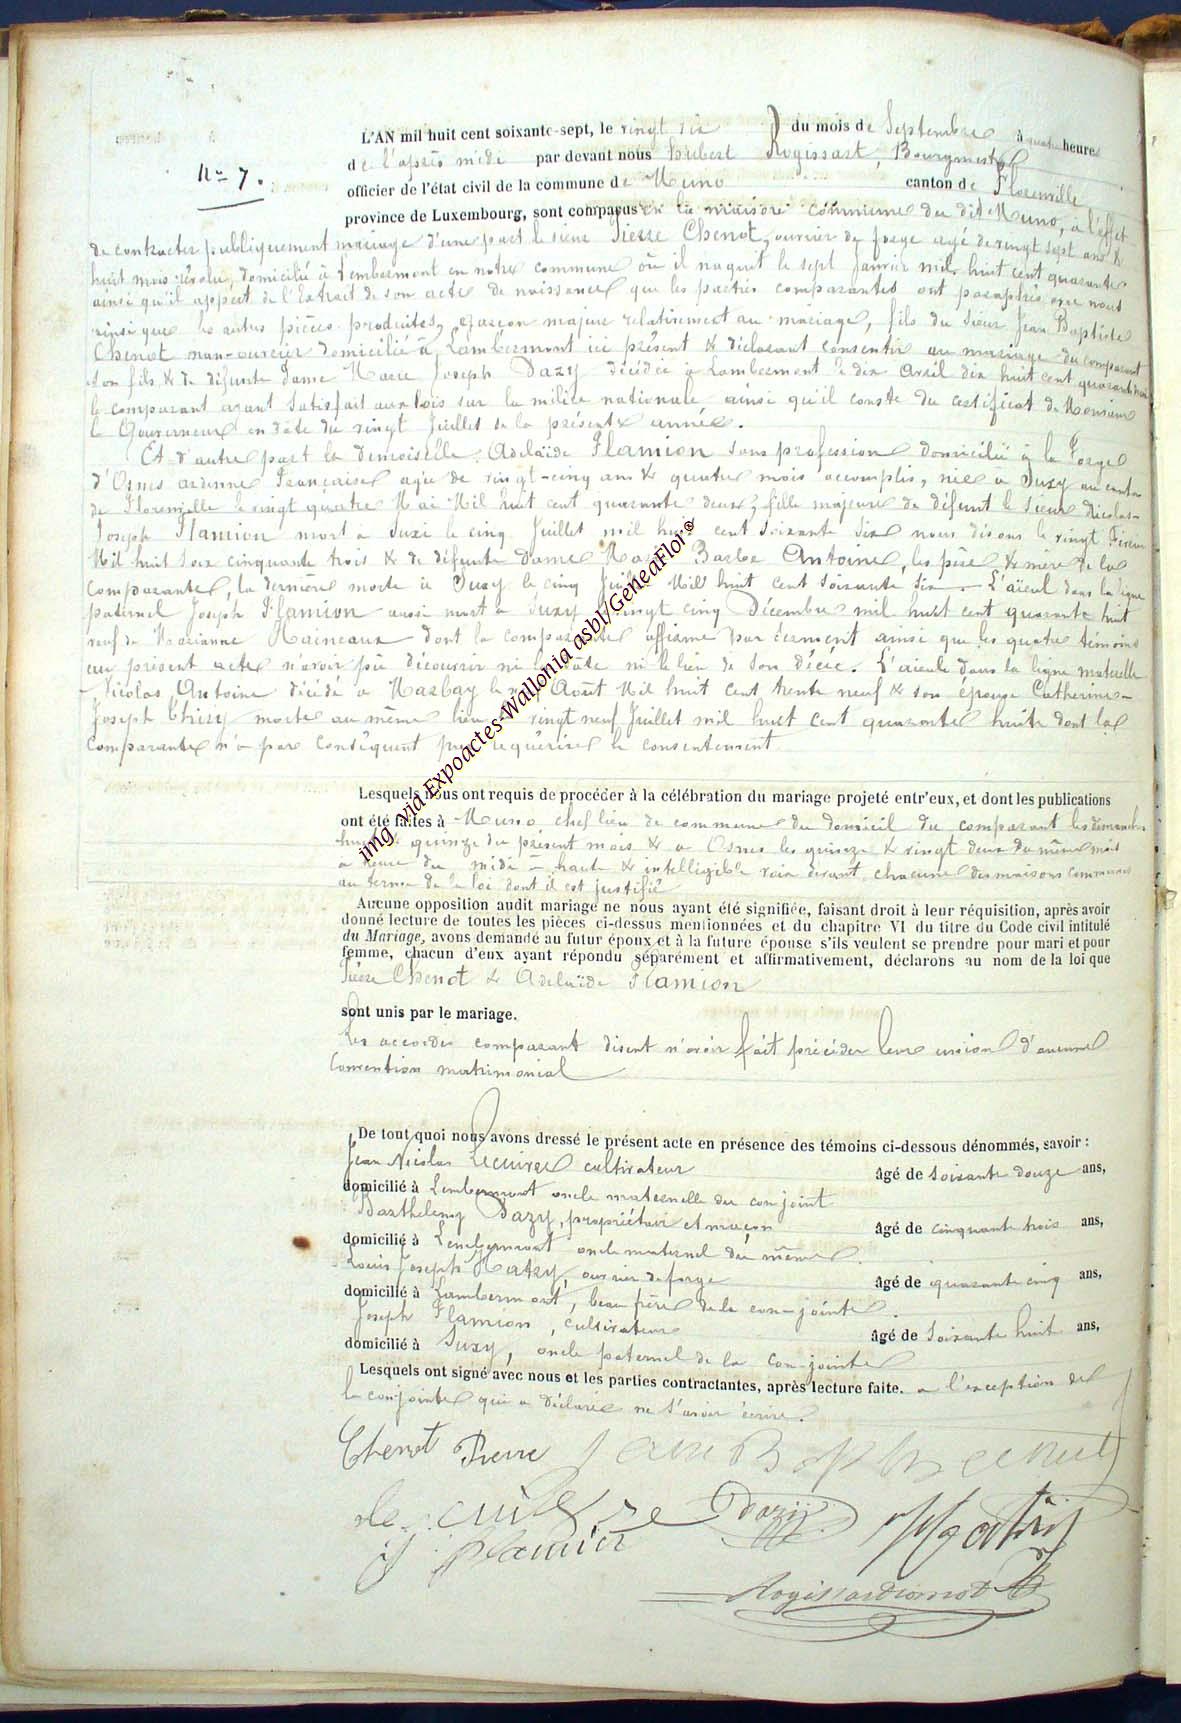 N° 7.
L'AN mil huit cent soixante-sept, le vingt six du mois de Septembre à quatre heures
de l'après midi par devant nous Hubert Rogissart, Bourgmestre
officier de l'état civil de la commune de Muno canton de Florenville
province de Luxembourg, sont comparus en la maison commune du dit Muno, à l'effet
de contracter publiquement mariage d'une part le sieur Pierre Chenot, ouvrier de forge agé de vingt sept ans &
huit mois révolu, domicilié à Lembermont en notre commune où il naquit le sept Janvier mil huit cent quarante
ainsi qu'il appert de l'Extrait de son acte de naissance que les parties comparantes ont paraphés avec nous
ainsi que les autres pièces produites, garçon majeur relativement au mariage, fils du sieur Jean Baptiste
Chenot man-ouvrier domicilié à Lambermont ici présent & déclarant consentir au mariage du comparant
son fils & de défunte Dame Marie Joseph Dazy décédée à Lambermont le dix Avril dix huit cent quarante
le comparant ayant satisfait aux lois sur la milice nationale ainsi qu'il conste du certificat de Monsieur
le Gouverneur en date du vingt Juillet de la présente année.
Et d'autre part la demoiselle Adelaïde Flamion sans profession domiciliée à la Forge
d'Osnes ardenne Française agée de vingt-cinq ans & quatre mois accomplis, née a Suxy au canton
de Florenville le vingt quatre Mai Mil huit cent quarante deux, fille majeure de défunt le Sieur Nicolas-
Joseph Flamion mort a Suxi le cinq Juillet mil huit cent soixante six nous disons le vingt Février
Mil huit soix cinquante trois & de défunte dame Marie Barbe Antoine, les père & mère de la
comparante, la dernière morte à Suxy le cinq Juillet Mil huit cent soixante six. L'aïeul dans la ligne
paternel Joseph Flamion aussi mort a Suxy le vingt cinq Décembre mil huit cent quarante huit
veuf de Marianne Haineaux dont la comparante affirme par serment ainsi que les quatre témoins
au présent acte n'avoir pû découvrir ni la date ni le lieu de son décéc. L'aieule dans la ligne maternelle
Nicolas Antoine décédé a Marbay le Août Mil huit cent trente neuf & son épouse Catherine-
Joseph Thiry morte au même lieu le vingt neuf Juillet mil huit cent quarante huit dont la
comparante n'a par conséquent pu requérire le consentement
Lesquels nous ont requis de procéder à la célébration du mariage projeté entr'eux, et dont les publications
ont été faites à Muno chef lieu de commune du domicil du comparant les dimanches
huit & quinze du présent mois & a Osnes les quinze & vingt deux du même mois
a heure du midi a haute & intelligible voix devant chacune des maisons communes
au terme de la loi dont il est justifié
Aucune opposition audit mariage ne nous ayant été signifiée, faisant droit à leur réquisition, après avoir
donné lecture de toutes les pièces ci-dessus mentionnées et du chapitre VI du titre du Code civil intitulé
du Mariage, avons demandé au futur époux et à la future épouse s'ils veulent se prendre pour mari et pour
femme, chacun d'eux ayant répondu séparément et affirmativement, déclarons au nom de la loi que
Pierre Chenot & Adelaïde Flamion
sont unis par le mariage.
Les accordés comparant disent n'avoir fait précéder leur union d'aucune
Convention matrimonial
De tout quoi nous avons dressé le présent acte en présence des témoins ci-dessous dénommés, savoir :
Jean Nicolas Lecuivre cultivateur âgé de soixante douze ans,
domicilié à Lembermont oncle maternelle du conjoint
Barthelemy Dazy, propriétaire et maçon âgé de cinquante trois ans,
domicilié à Lembermont oncle maternel du même
Louis Joseph Matry, ouvrier de forge âgé de quarante cinq ans,
domicilié à Lambermont, beau frère de la con-jointe.
Joseph Flamion, cultivateur âgé de Soixante huit ans,
domicilié à Suxy, oncle paternel de la con-jointe
Lesquels ont signé avec nous et les parties contractantes, après lecture faite. a l'exception de
la conjointe qui a déclarée ne savoir écrire.
Chenot Pierre Jean Bapt chenot
le cuivre Dazy Matry
J flamion
Rogissart
img via Expoactes-Wallonia asbl/GeneaFlor®